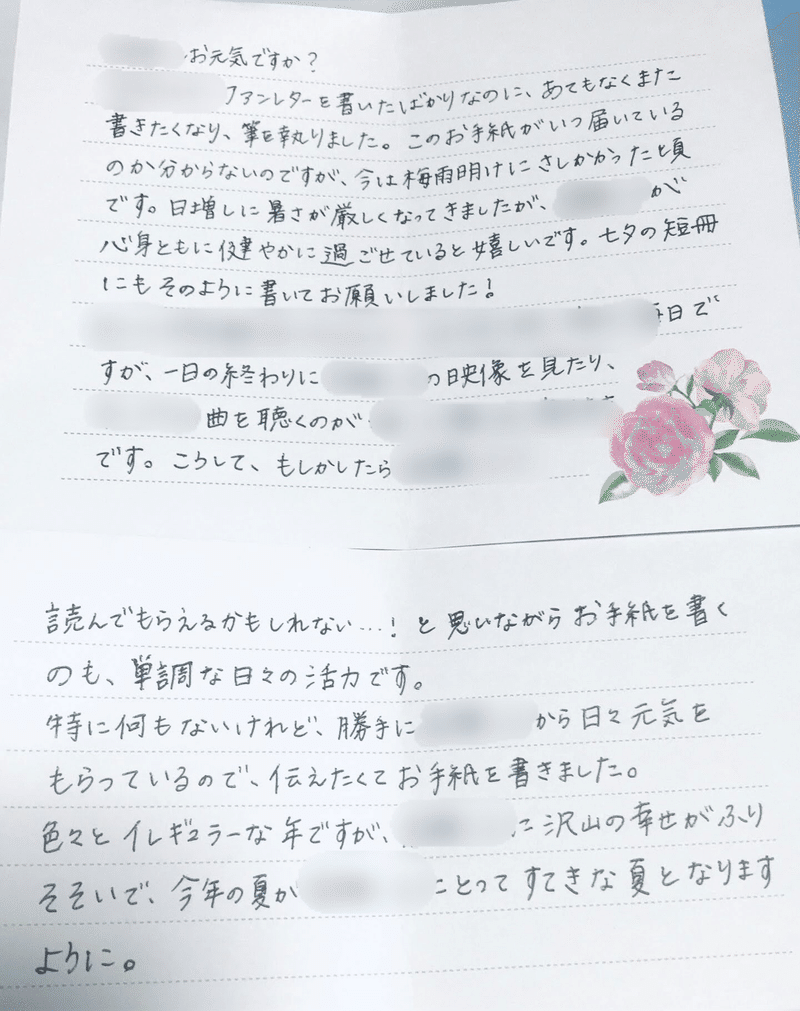 お元気ですか？
ファンレターを書いたばかりなのに、あてもなくまた
書きたくなり、筆を執りました。このお手紙がいつ届いている
のか分からないのですが、今は梅雨明けにさしかかった頃
です。日増しに暑さが厳しくなってきましたが、が
心身ともに健やかに過ごせていると嬉しいです。七夕の短冊
にもそのように書いてお願いしました！
毎日で
すが、一日の終わりにの映像を見たり、
曲を聴くのが
です。こうして、もしかしたら
読んでもらえるかもしれない…！と思いながらお手紙を書く
のも、単調な日々の活力です。
特に何もないけれど、勝手にから日々元気を
もらっているので、伝えたくてお手紙を書きました。
色々とイレギュラーな年ですが、に沢山の幸せがふり
そそいで、今年の夏がにとってすてきな夏となります
ように。